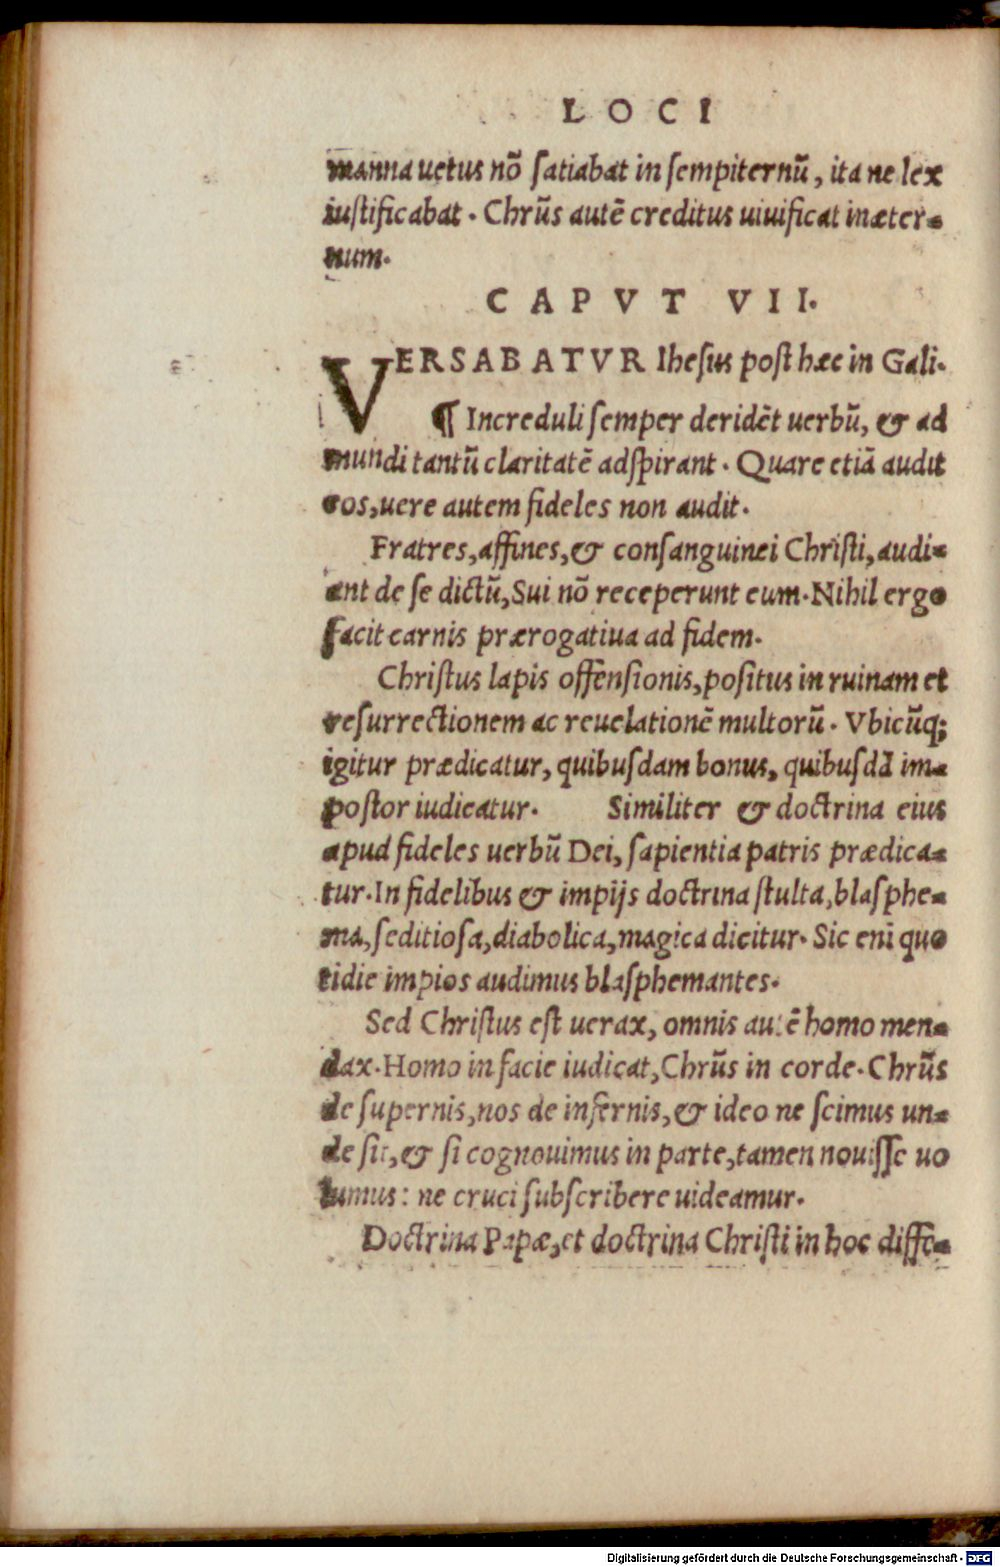 LOCI
manna uetus nõ ſatiabat in ſempiternũ, ita ne lex
iuſtificabat. Chrũs autẽ creditus uiuificat inæter-
num.
CAPVT VII.
VERSABATVR Iheſus poſt hæc in Gali.
¶ Increduli ſemper deridẽt uerbũ, & ad
mundi tantũ claritatẽ adſpirant. Quare etiã audit
eos, uere autem fideles non audit.
Fratres, affines, & conſanguinei Chriſti, audi-
ant de ſe dictũ, Sui nõ receperunt eum. Nihil ergo
facit carnis prærogatiua ad fidem.
Chriſtus lapis offenſionis, poſitus in ruinam et
reſurrectionem ac reuelationẽ multorũ. Vbicũq;
igitur prædicatur, quibuſdam bonus, quibuſdã im-
poſtor iudicatur. Similiter & doctrina eius
apud fideles uerbũ Dei, ſapientia patris prædica-
tur. In fidelibus & impijs doctrina ſtulta, blaſphe-
ma, ſeditioſa, diabolica, magica dicitur. Sic enĩ quo
tidie impios audimus blaſphemantes.
Sed Chriſtus eſt uerax, omnis autẽ homo men-
dax. Homo in facie iudicat, Chrũs in corde. Chrũs
de ſupernis, nos de infernis, & ideo ne ſcimus un-
de ſit, & ſi cognouimus in parte, tamen nouiſſe uo
lumus: ne cruci ſubſcribere uideamur.
Doctrina Papæ, et doctrina Chriſti in hoc diffe-
Digitalisierung gefördert durch die Deutsche Forschungsgemeinschaft - DFG